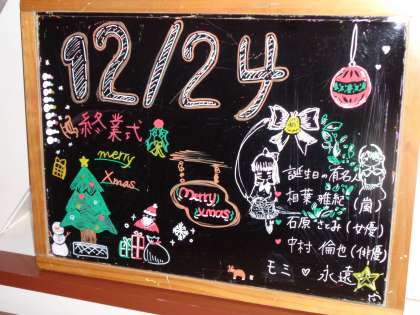 12/24
終業式
merry
Xmas
merry
xmas
誕生日の有名人
相葉 雅紀(嵐)
石原 さとみ(女優)
中村 倫也(俳優)
モミ ♡ 永遠